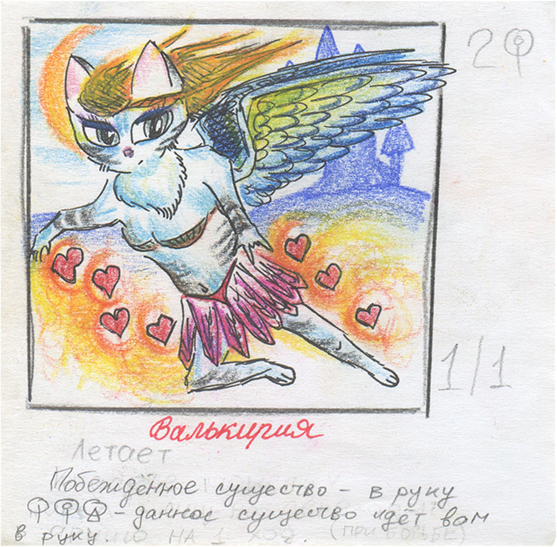 2
1/1
Валькирия
Летает
Побеждённое существо - в руку
- данное существо идёт вам
в руку.
НА 1 ХОД. (ПРИ